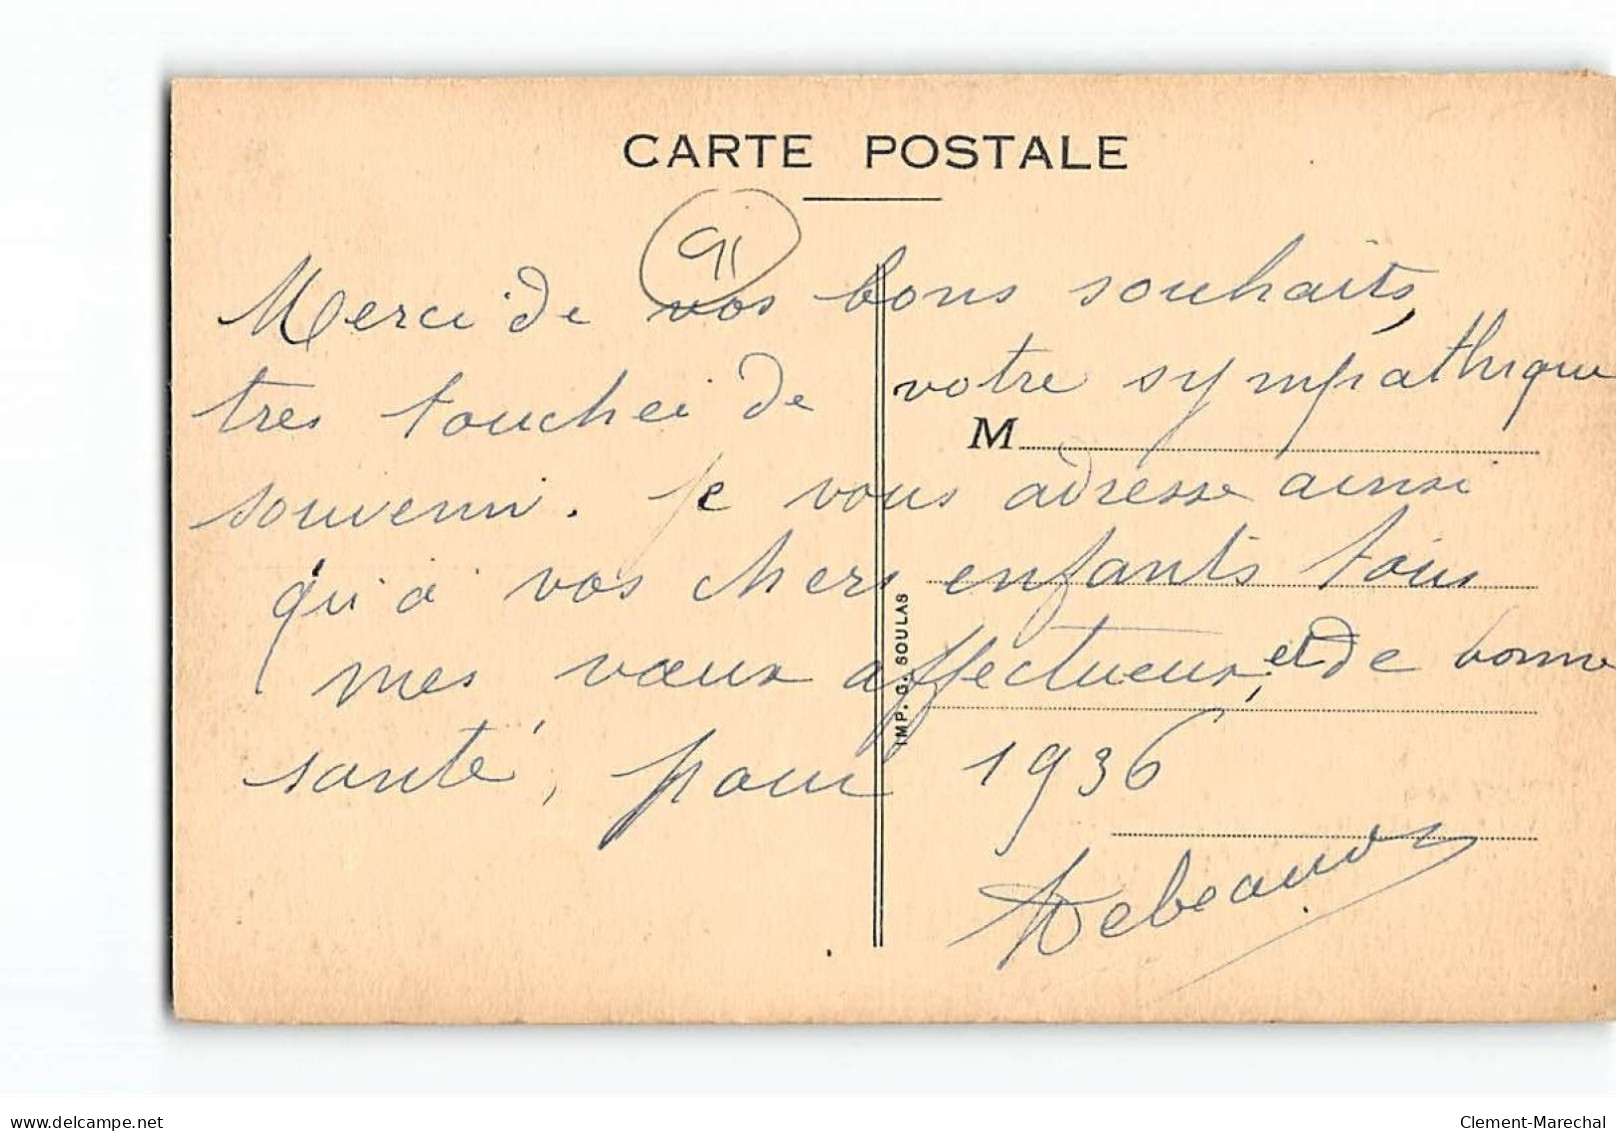 CARTE POSTALE
91
Merci de vos bons souhaits,
très touchei de votre sympathique
M
souvenir. Je vous adresse ainsi
qu'à vos chers enfants tous
mes vœux affectueux, et de bonne
santé, pour 1936
Debeauvo
IMP. G. SOULAS
www.delcampe.net
Clement-Marechal